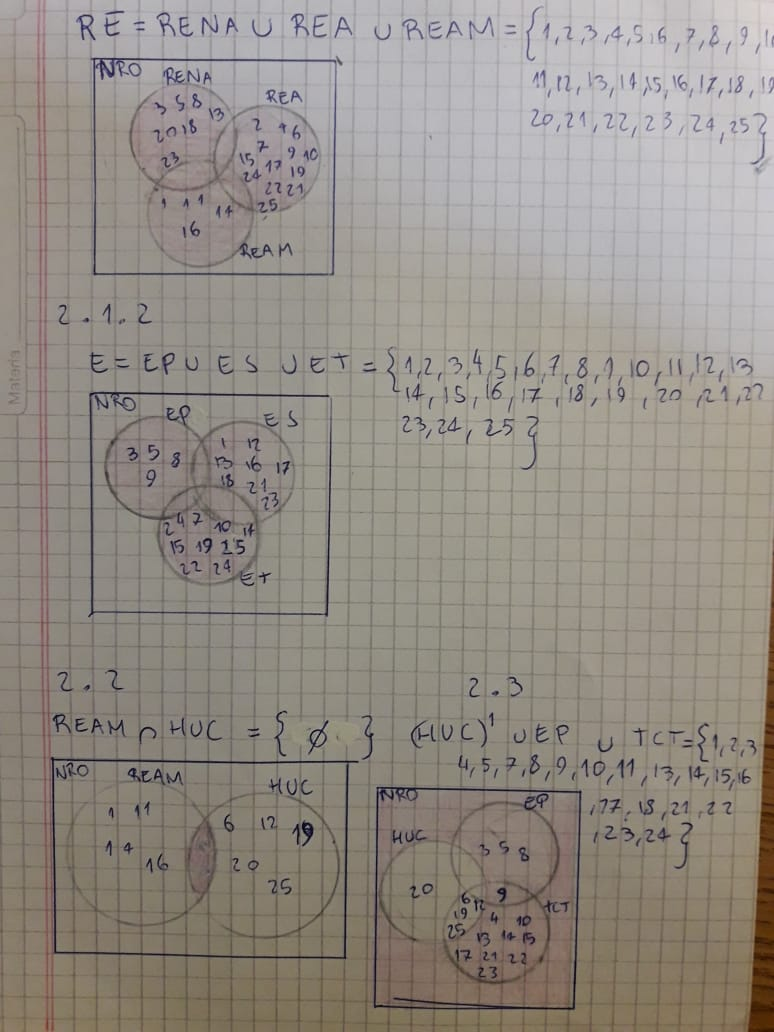 RE = RENA ∪ REA ∪ REAM = {1,2,3,4,5,6,7,8,9,
11,12,13,14,15,16,17,18,19
20,21,22,23,24,25}
NRO RENA
REA
3 5 8 13
20 18
23
2 4 6
7 9 10
15 17 19
24 22 21
25
1 11 14
16
REAM
2.1.2
E = EP ∪ ES ∪ ET = {1,2,3,4,5,6,7,8,9,10,11,12,13
14,15,16,17,18,19,20,21,22
23,24,25}
NRO EP ES
3 5 8
9
1 12
13 16 17
18 21
23
2 4 7 10 14
15 19 25
22 24
ET
2.2
REAM ∩ HUC = {∅}
NRO REAM HUC
1 11
14
16
6 12 19
20
25
2.3
(HUC)' ∪ EP ∪ TCT = {1,2,3
4,5,7,8,9,10,11,13,14,15,16
,17,18,21,22
,23,24}
NRO EP
HUC
3 5 8
20
9
6 12 TCT
19 4 10
25 13 14 15
17 21 22
23
Materia